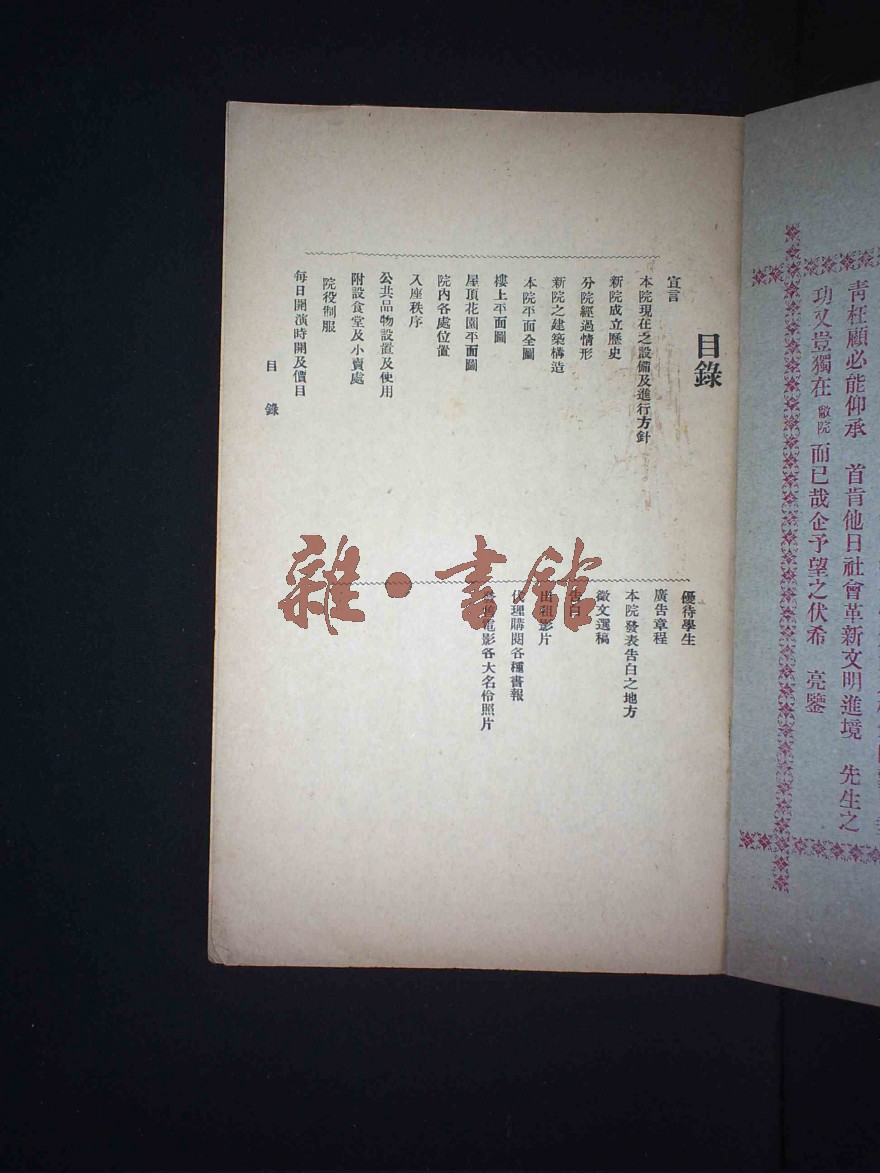 青枉顧必能仰承　首肯他日社會革新文明進境　先生之
功又豈獨在敝院而已哉企予望之伏希　亮鑒
目錄
宣言
本院現在之設備及進行方針
新院成立歷史
分院經過情形
新院之建築構造
本院平面全圖
樓上平面圖
屋頂花園平面圖
院內各處位置
入座秩序
公共品物設置及使用
附設食堂及小賣處
院役制服
每日開演時開及價目
優待學生
廣告章程
本院發表告白之地方
徵文選稿
告白
出租影片
代理購閱各種書報
電影各大名伶照片
目錄
雜·書館